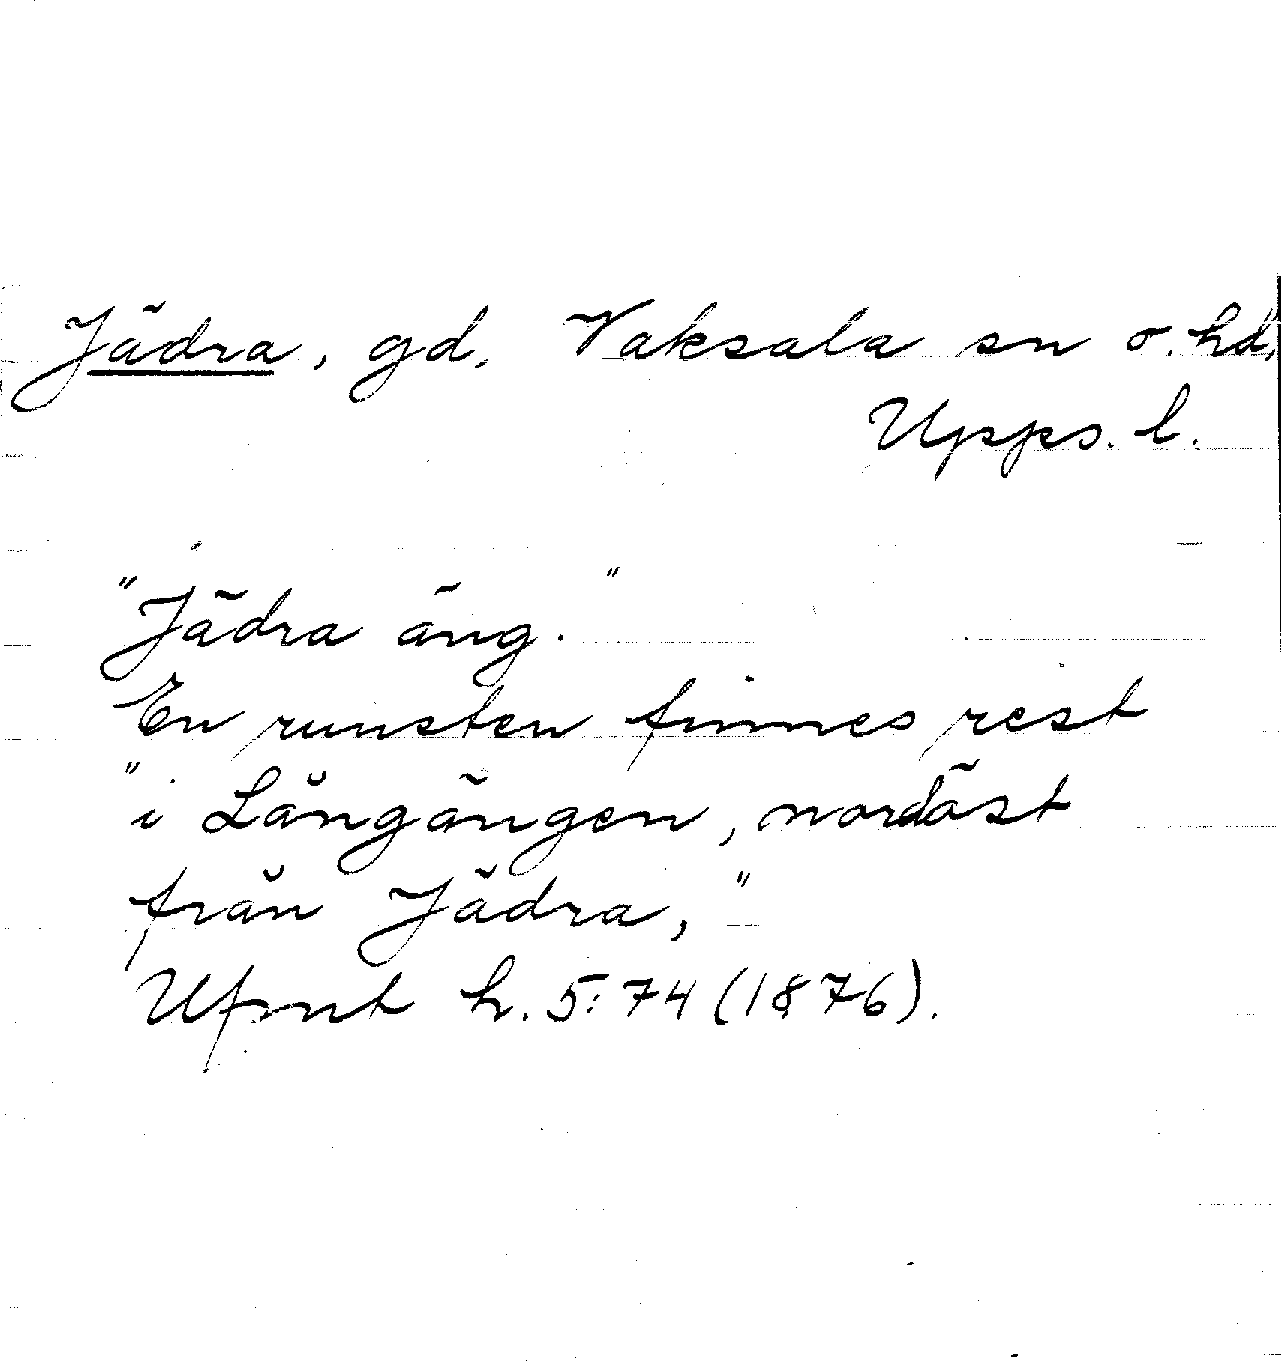 Jädra, gd, Vaksala sn o. hd,
Upps. l.
"Jädra äng."
En runsten finnes rest
"i Långängen, nordöst
från Jädra,"
Ufmt h. 5:74 (1876).